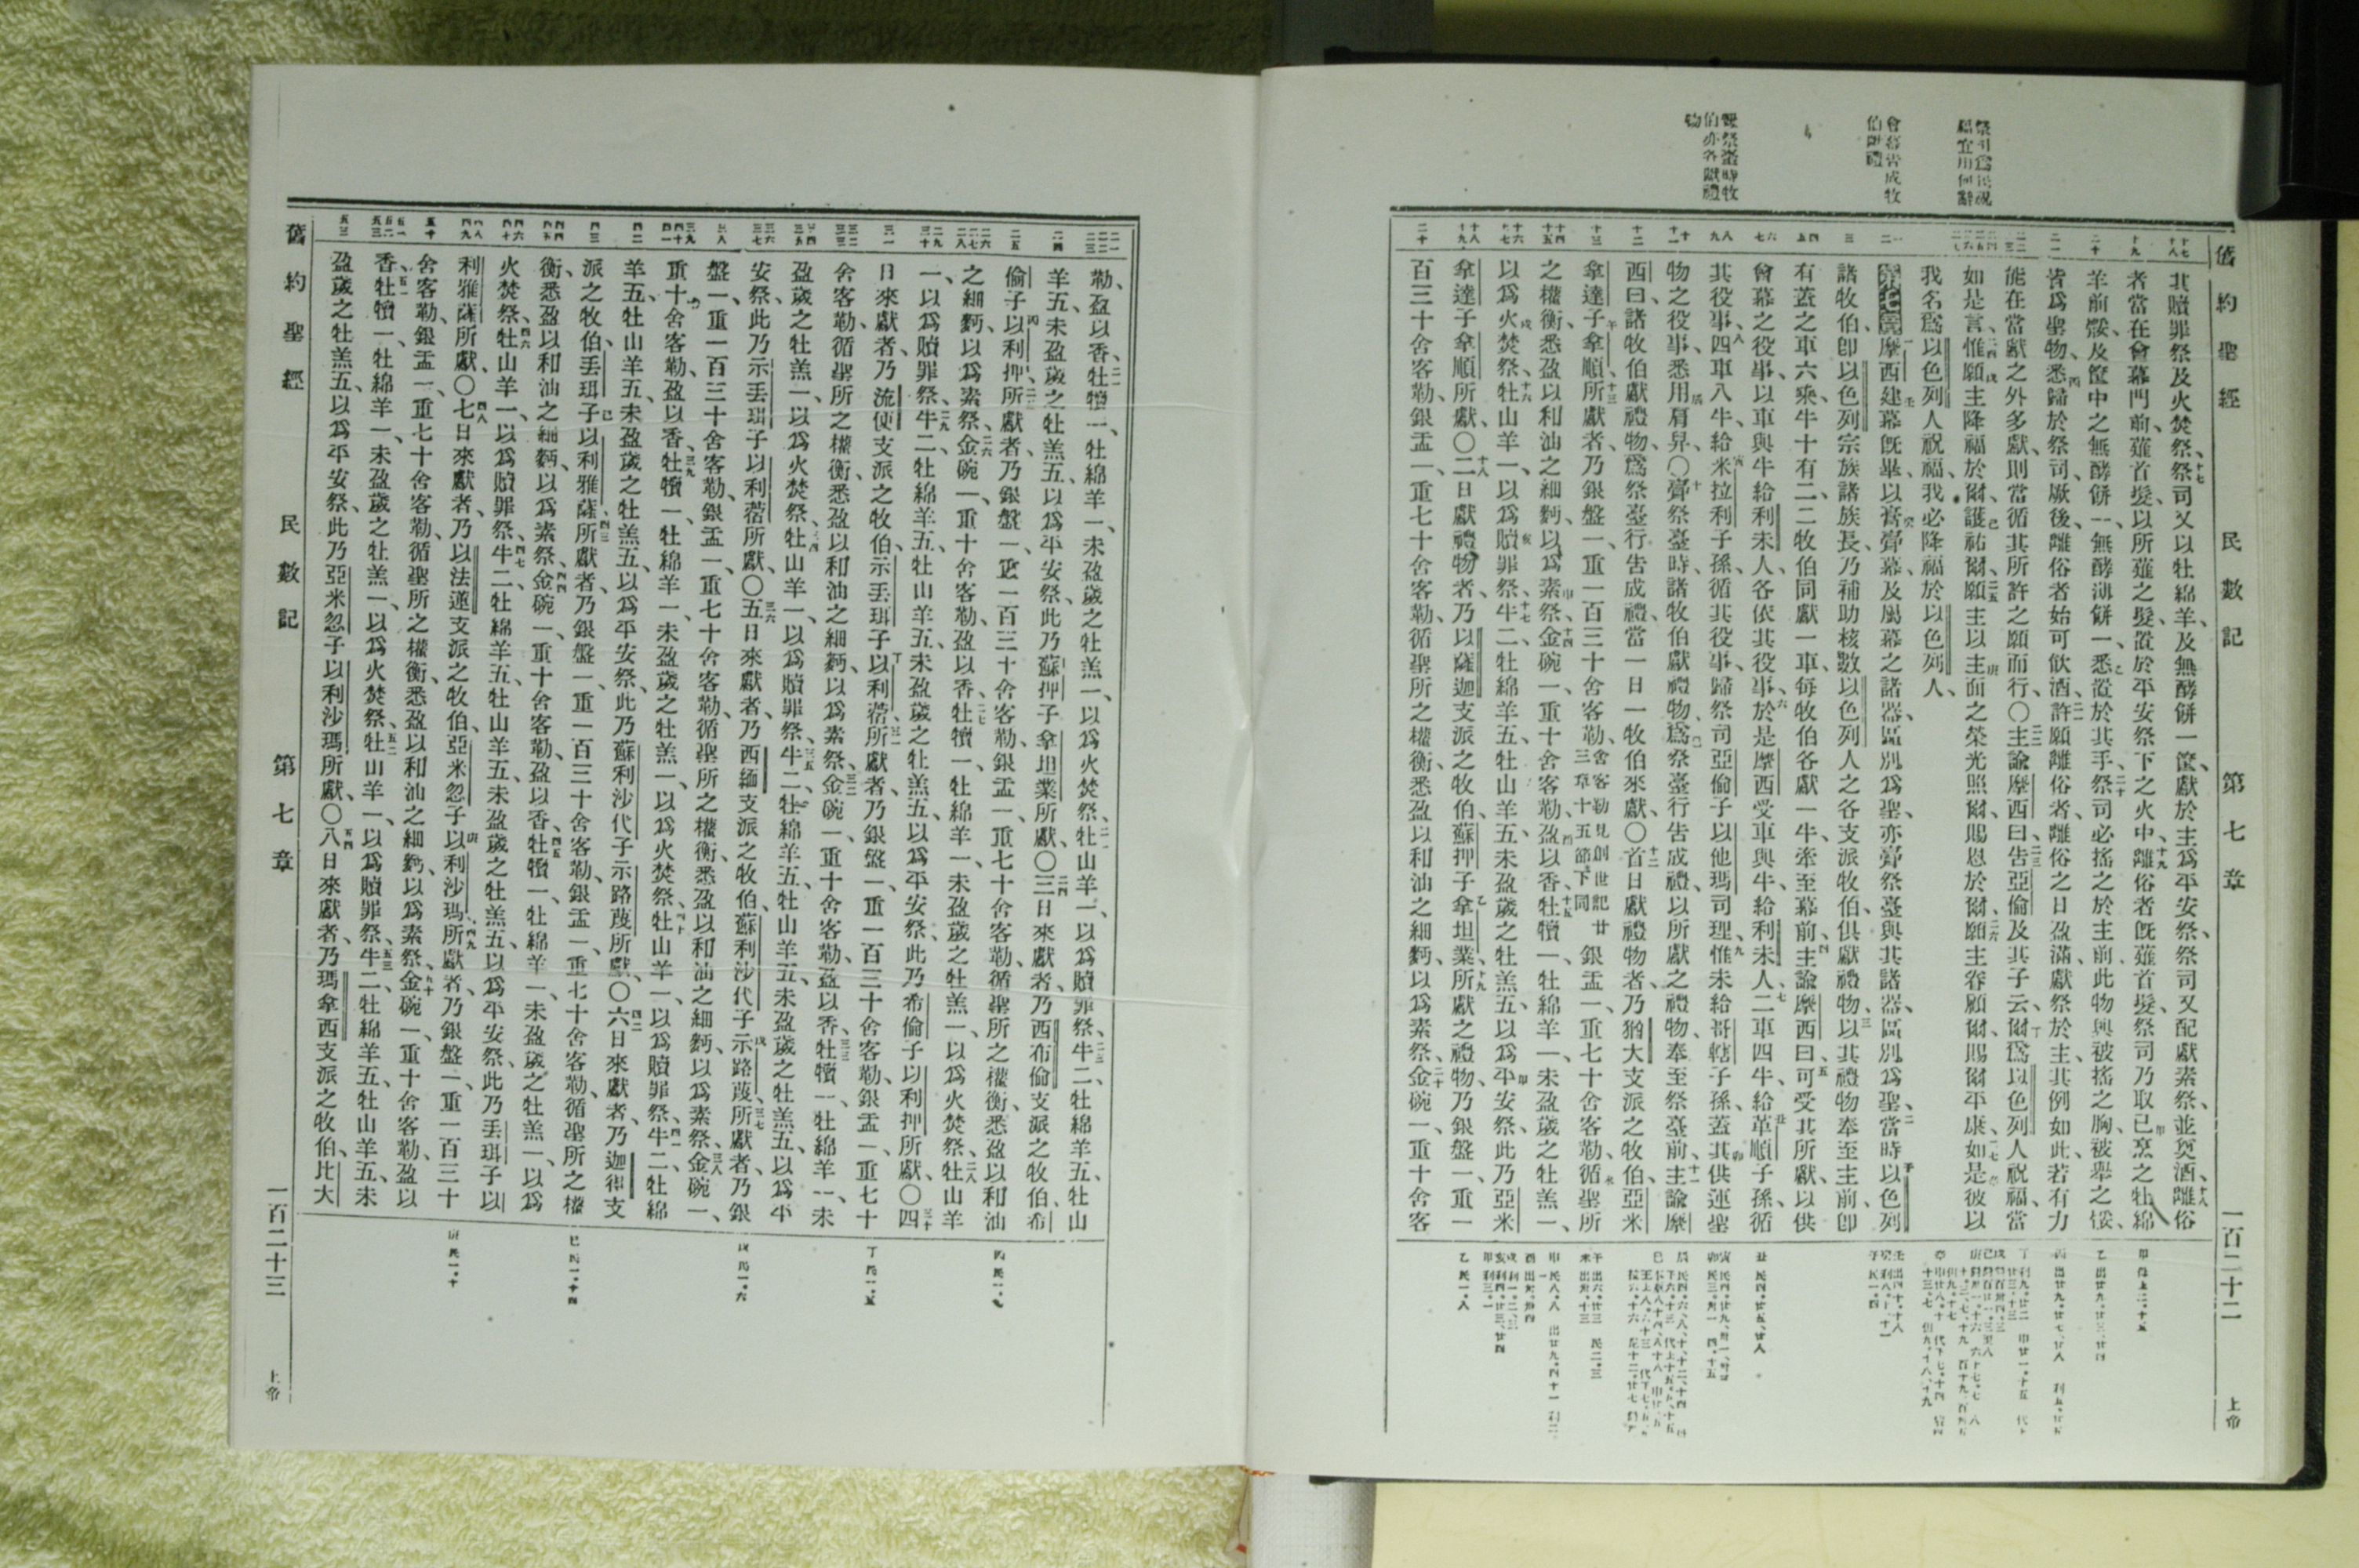 舊約聖經　民數記　第七章　一百二十二　上帝
祭司爲民祝
福宜用何辭
會幕告成牧
伯獻禮
釁祭臺時牧
伯亦各獻禮
物
其贖罪祭及火焚祭、祭司又以牡綿羊、及無酵餅一筐、獻於主、爲平安祭、祭司又配獻素祭、並奠酒、離俗
者當在會幕門前薙首髮、以所薙之髮、置於平安祭下之火中、離俗者旣薙首髮、祭司乃取已烹之牡綿
羊前骽、及筐中之無酵餅一、無酵薄餅一、悉置於其手、祭司必搖之於主前、此物與被搖之胸、被舉之骽、
皆爲聖物、悉歸於祭司、厥後、離俗者始可飲酒、許願離俗者、離俗之日盈滿、獻祭於主、其例如此、若有力
能在當獻之外多獻、則當循其所許之願而行、〇主諭摩西曰、告亞倫及其子云、爾爲以色列人祝福、當
如是言、惟願主降福於爾、護祐爾、願主以主面之榮光照爾、賜恩於爾、願主眷顧爾、賜爾平康、如是彼以
我名爲以色列人祝福、我必降福於以色列人、
第七章 摩西建幕旣畢、以膏膏幕、及屬幕之諸器、區別爲聖、亦膏祭臺與其諸器、區別爲聖、當時以色列
諸牧伯、卽以色列宗族諸族長、乃補助核數以色列人之各支派牧伯、俱獻禮物、以其禮物奉至主前、卽
有蓋之車六乘、牛十有二、二牧伯同獻一車、每牧伯各獻一牛、牽至幕前、主諭摩西曰、可受其所獻、以供
會幕之役事、以車與牛給利未人、各依其役事、於是摩西受車與牛、給利未人、二車四牛、給革順子孫、循
其役事、四車八牛、給米拉利子孫、循其役事、歸祭司亞倫子以他瑪司理、惟未給哥轄子孫、蓋其供運聖
物之役事、悉用肩舁、〇膏祭臺時、諸牧伯獻禮物、爲祭臺行告成禮、以所獻之禮物、奉至祭臺前、主諭摩
西曰、諸牧伯獻禮物、爲祭臺行告成禮、當一日一牧伯來獻、〇首日獻禮物者、乃猶大支派之牧伯、亞米
拿達子拿順、所獻者、乃銀盤一、重一百三十舍客勒、舍客勒見創世記廿三章十五節下同銀盂一、重七十舍客勒、循聖所
之權衡、悉盈以和油之細麪、以爲素祭、金碗一、重十舍客勒、盈以香、牡犢一、牡綿羊一、未盈歲之牡羔一、
以爲火焚祭、牡山羊一、以爲贖罪祭、牛二、牡綿羊五、牡山羊五、未盈歲之牡羔五、以爲平安祭、此乃亞米
拿達子拿順所獻、〇二日獻禮物者、乃以薩迦支派之牧伯、蘇押子拿坦業、所獻之禮物、乃銀盤一、重一
百三十舍客勒、銀盂一、重七十舍客勒、循聖所之權衡、悉盈以和油之細麪、以爲素祭、金碗一、重十舍客
勒、盈以香、牡犢一、牡綿羊一、未盈歲之牡羔一、以爲火焚祭、牡山羊一、以爲贖罪祭、牛二、牡綿羊五、牡山
羊五、未盈歲之牡羔五、以爲平安祭、此乃蘇押子拿坦業所獻、〇三日來獻者、乃西布倫支派之牧伯、希
倫子以利押、所獻者、乃銀盤一、重一百三十舍客勒、銀盂一、重七十舍客勒、循聖所之權衡、悉盈以和油
之細麪、以爲素祭、金碗一、重十舍客勒、盈以香、牡犢一、牡綿羊一、未盈歲之牡羔一、以爲火焚祭、牡山羊
一、以爲贖罪祭、牛二、牡綿羊五、牡山羊五、未盈歲之牡羔五、以爲平安祭、此乃希倫子以利押所獻、〇四
日來獻者、乃流便支派之牧伯、示丟珥子以利蓿、所獻者、乃銀盤一、重一百三十舍客勒、銀盂一、重七十
舍客勒、循聖所之權衡、悉盈以和油之細麪、以爲素祭、金碗一、重十舍客勒、盈以香、牡犢一、牡綿羊一、未
盈歲之牡羔一、以爲火焚祭、牡山羊一、以爲贖罪祭、牛二、牡綿羊五、牡山羊五、未盈歲之牡羔五、以爲平
安祭、此乃示丟珥子以利蓿所獻、〇五日來獻者、乃西緬支派之牧伯、蘇利沙代子示路蔑、所獻者、乃銀
盤一、重一百三十舍客勒、銀盂一、重七十舍客勒、循聖所之權衡、悉盈以和油之細麪、以爲素祭、金碗一、
重十舍客勒、盈以香、牡犢一、牡綿羊一、未盈歲之牡羔一、以爲火焚祭、牡山羊一、以爲贖罪祭、牛二、牡綿
羊五、牡山羊五、未盈歲之牡羔五、以爲平安祭、此乃蘇利沙代子示路蔑所獻、〇六日來獻者、乃迦得支
派之牧伯、丟珥子以利雅薩、所獻者、乃銀盤一、重一百三十舍客勒、銀盂一、重七十舍客勒、循聖所之權
衡、悉盈以和油之細麪、以爲素祭、金碗一、重十舍客勒、盈以香、牡犢一、牡綿羊一、未盈歲之牡羔一、以爲
火焚祭、牡山羊一、以爲贖罪祭、牛二、牡綿羊五、牡山羊五、未盈歲之牡羔五、以爲平安祭、此乃丟珥子以
利雅薩所獻、〇七日來獻者、乃以法蓮支派之牧伯、亞米忽子以利沙瑪、所獻者、乃銀盤一、重一百三十
舍客勒、銀盂一、重七十舍客勒、循聖所之權衡、悉盈以和油之細麪、以爲素祭、金碗一、重十舍客勒、盈以
香、牡犢一、牡綿羊一、未盈歲之牡羔一、以爲火焚祭、牡山羊一、以爲贖罪祭、牛二、牡綿羊五、牡山羊五、未
盈歲之牡羔五、以爲平安祭、此乃亞米忽子以利沙瑪所獻、〇八日來獻者、乃瑪拿西支派之牧伯、比大
舊約聖經　民數記　第七章　一百二十三　上帝